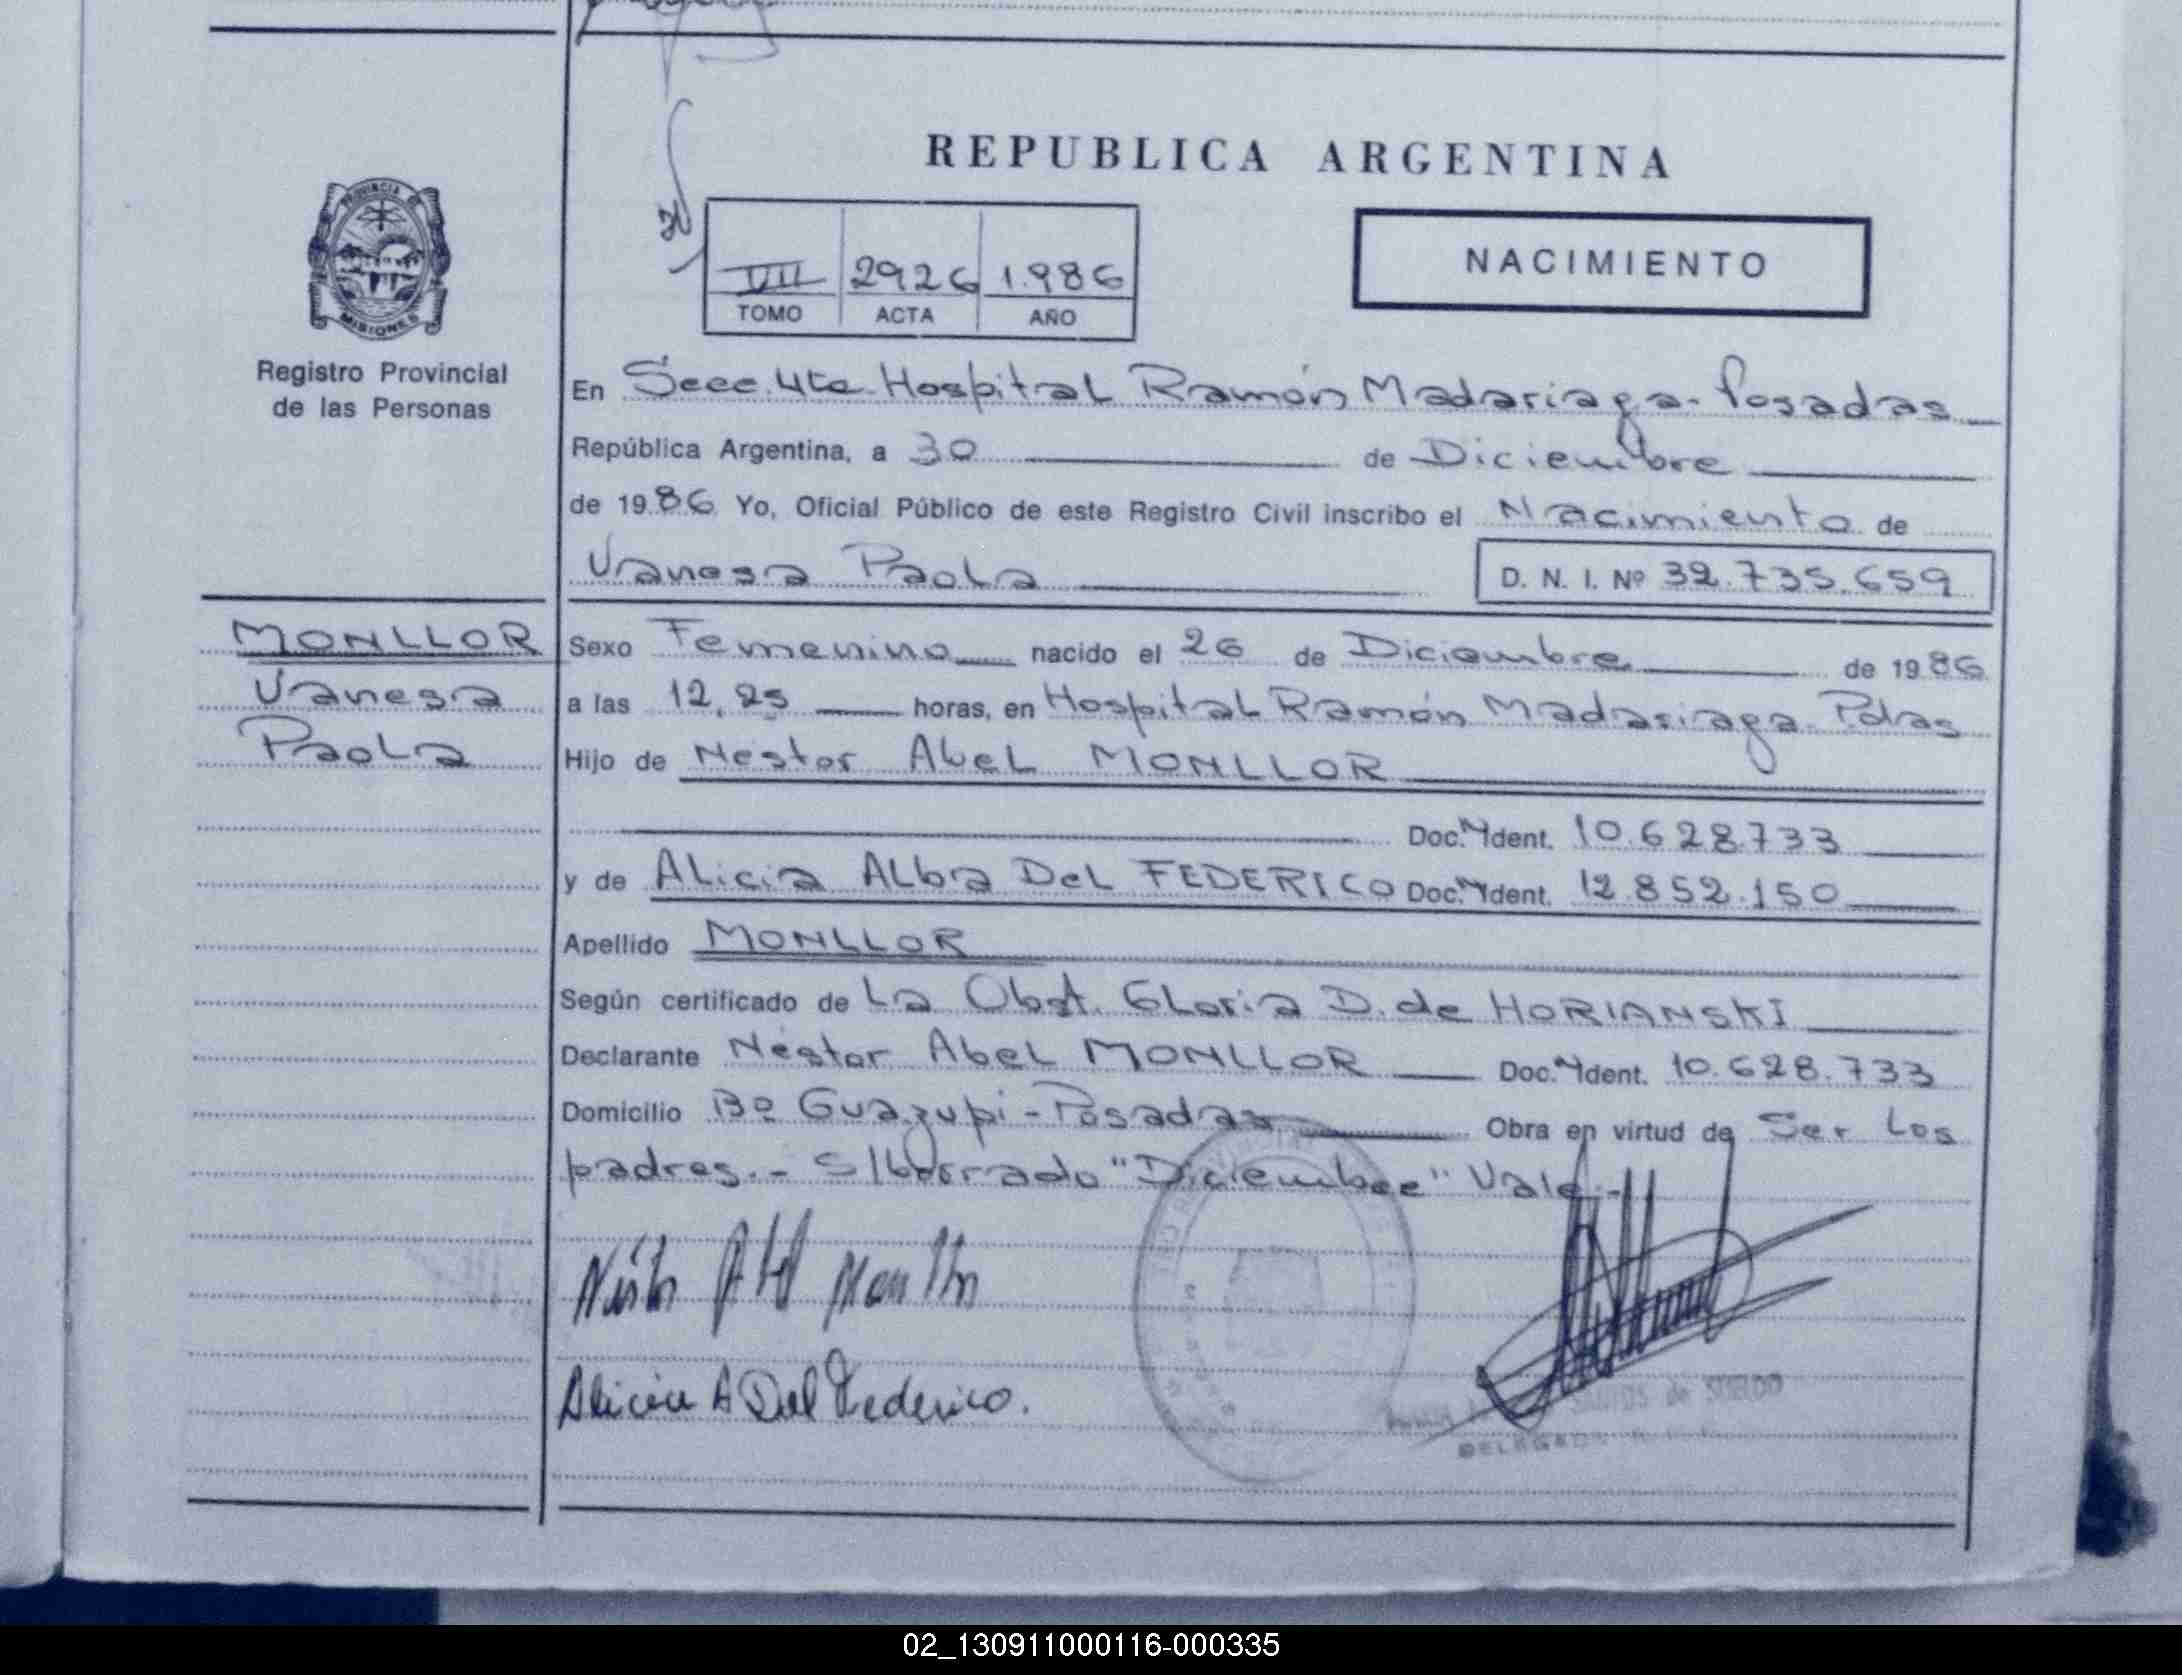 REPUBLICA ARGENTINA
PROVINCIA DE
MISIONES
Registro Provincial
de las Personas
VII 2926 1.986
TOMO ACTA AÑO
NACIMIENTO
En Secc. 4ta Hospital Ramón Madariaga - Posadas
República Argentina, a 30 de Diciembre
de 1986 Yo, Oficial Público de este Registro Civil inscribo el Nacimiento de
Vanesa Paola D. N. I. Nº 32.735.659
MONLLOR
Vanesa
Paola
Sexo Femenino nacido el 26 de Diciembre de 1986
a las 12,25 horas, en Hospital Ramón Madariaga Pdas
Hijo de Néstor Abel MONLLOR
Doc. Ident. 10.628.733
y de Alicia Alba Del FEDERICO Doc. Ident. 12.852.150
Apellido MONLLOR
Según certificado de La Obst. Gloria D. de HORIANSKI
Declarante Néstor Abel MONLLOR Doc. Ident. 10.628.733
Domicilio Bº Guazupi - Posadas Obra en virtud de Ser Los
padres.- S/borrado "Diciembre" Vale.-
Néstor Abel Monllor
Alicia A Del Federico.
SANTOS de SUELDO
DELEGADA
02_130911000116-000335